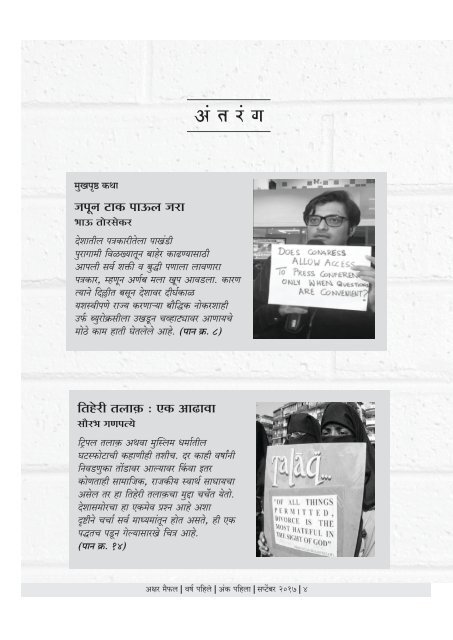 अंतरंग
मुखपृष्ठ कथा
जपून टाक पाऊल जरा
भाऊ तोरसेकर
देशातील पत्रकारीतेला पाखंडी
पुरागामी विळख्यातून बाहेर काढण्यासाठी
आपली सर्व शक्ती व बुद्धी पणाला लावणारा
पत्रकार, म्हणून अर्णब मला खुप आवडला. कारण
त्याने दिल्लीत बसून देशावर दीर्घकाळ
यशस्वीपणे राज्य करणाऱ्या बौद्धिक नोकरशाही
उर्फ ब्युरोक्रसीला उखडून चव्हाट्यावर आणायचे
मोठे काम हाती घेतलेले आहे. (पान क्र. ८)
DOES CONGRESS
ALLOW ACCESS
TO PRESS CONFEREN
ONLY WHEN QUESTIONS
ARE CONVENIENT?
तिहेरी तलाक़ : एक आढावा
सौरभ गणपत्ये
ट्रिपल तलाक़ अथवा मुस्लिम धर्मातील
घटस्फोटाची कहाणीही तशीच. दर काही वर्षांनी
निवडणुका तोंडावर आल्यावर किंवा इतर
कोणताही सामाजिक, राजकीय स्वार्थ साधायचा
असेल तर हा तिहेरी तलाक़चा मुद्दा चर्चेत येतो.
देशासमोरचा हा एकमेव प्रश्न आहे अशा
दृष्टीने चर्चा सर्व माध्यमांतून होत असते, ही एक
पद्धतच पडून गेल्यासारखे चित्र आहे.
(पान क्र. १४)
Talaq...
"OF ALL THINGS
PERMITTED,
DIVORCE IS THE
MOST HATEFUL IN
THE SIGHT OF GOD"
अक्षर मैफल | वर्ष पहिले | अंक पहिला | सप्टेंबर २०१७ | ४